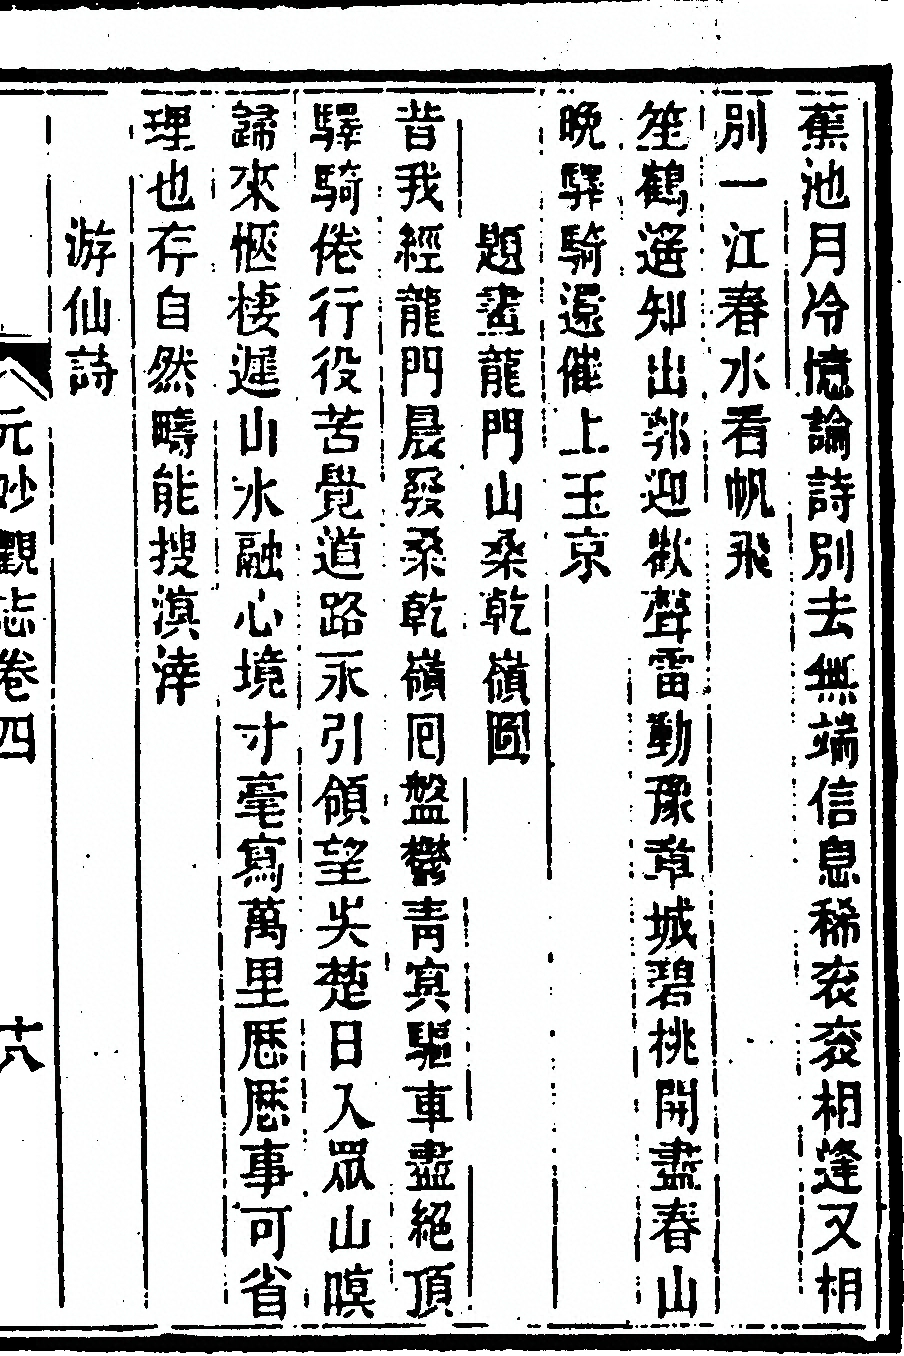 蕉池月冷憶論詩別去無端信息稀衮衮相逢又相
別一江春水看帆飛
笙鶴遙知出郭迎歡聲雷動豫章城碧桃開盡春山
晚驛騎還催上玉京
題畫龍門山桑乾嶺圖
昔我經龍門晨發桑乾嶺回盤鬱青冥驅車盡絕頂
驛騎倦行役苦覺道路永引領望吴楚日入眾山暝
歸來愜棲遲山水融心境寸毫寫萬里歷歷事可省
理也存自然疇能搜溟涬
游仙詩
元妙觀志卷四
十八